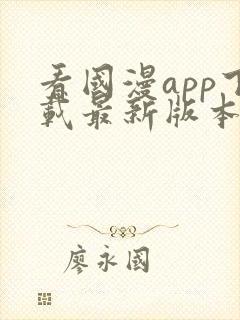 看國漫app下
載最新版本
廖永國